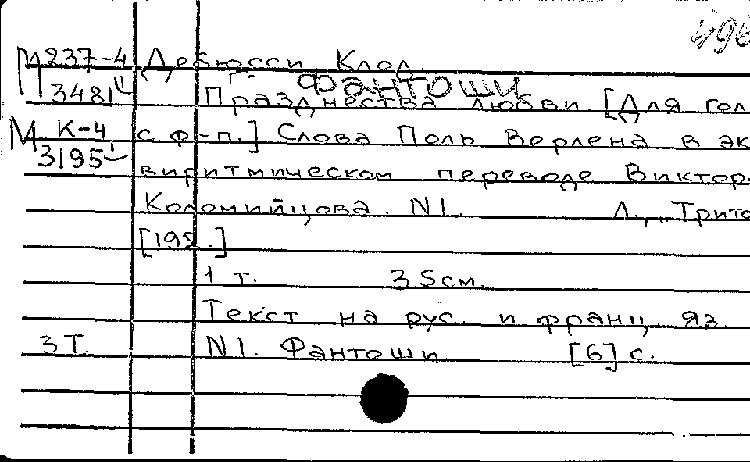 496
М 237-4 Дебюсси Клод.
3481 Фантоши
Празднества любви. [Для гол
М К-4 с ф-п.] Слова Поль Верлена в эк
3195
виритмическом переводе Виктор
Коломийцова. N1. Л., Трито
[192.]
1 т. 35см.
Текст на рус. и франц. яз.
3 т. N1. Фантоши [6] с.